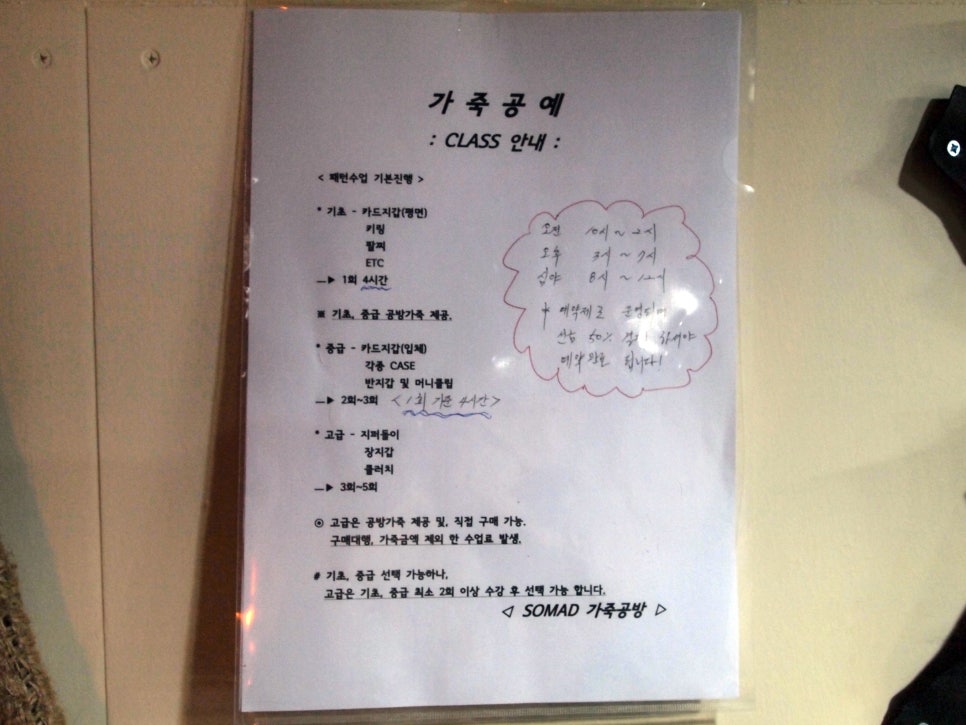 가죽공예
: CLASS 안내 :
< 패턴수업 기본진행 >
* 기초 - 카드지갑(평면)
키링
팔찌
ETC
1회 4시간
※ 기초, 중급 공방가죽 제공.
* 중급 - 카드지갑(입체)
각종 CASE
반지갑 및 머니클립
2회~3회 <1회 기준 4시간>
* 고급 - 지퍼돌이
장지갑
클러치
3회~5회
◎ 고급은 공방가죽 제공 및, 직접 구매 가능.
구매대행, 가죽금액 제외 한 수업료 발생.
# 기초, 중급 선택 가능하나,
고급은 기초, 중급 최소 2회 이상 수강 후 선택 가능 합니다.
◁ SOMAD 가죽공방 ▷
오전 10시 ~ 2시
오후 3시 ~ 7시
심야 8시 ~ 12시
예약제로 운영되며
선금 50% 결제 하셔야
예약완료 됩니다!